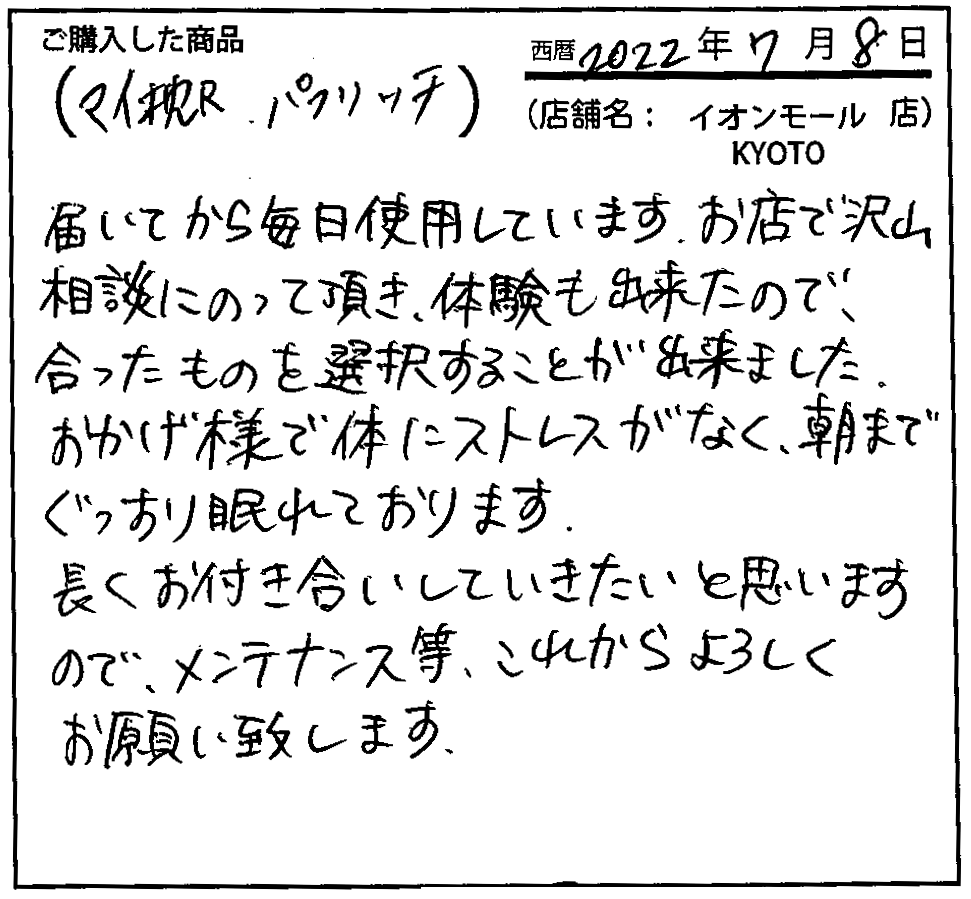 ご購入した商品
西暦 2022 年 7 月 8 日
(マイ枕R パフリッチ)
(店舗名: イオンモール 店)
KYOTO
届いてから毎日使用しています. お店で沢山
相談にのって頂き、体験も出来たので、
合ったものを選択することが出来ました.
おかげ様で体にストレスがなく、朝まで
ぐっすり眠れております.
長くお付き合いしていきたいと思います
ので、メンテナンス等、これからよろしく
お願い致します.